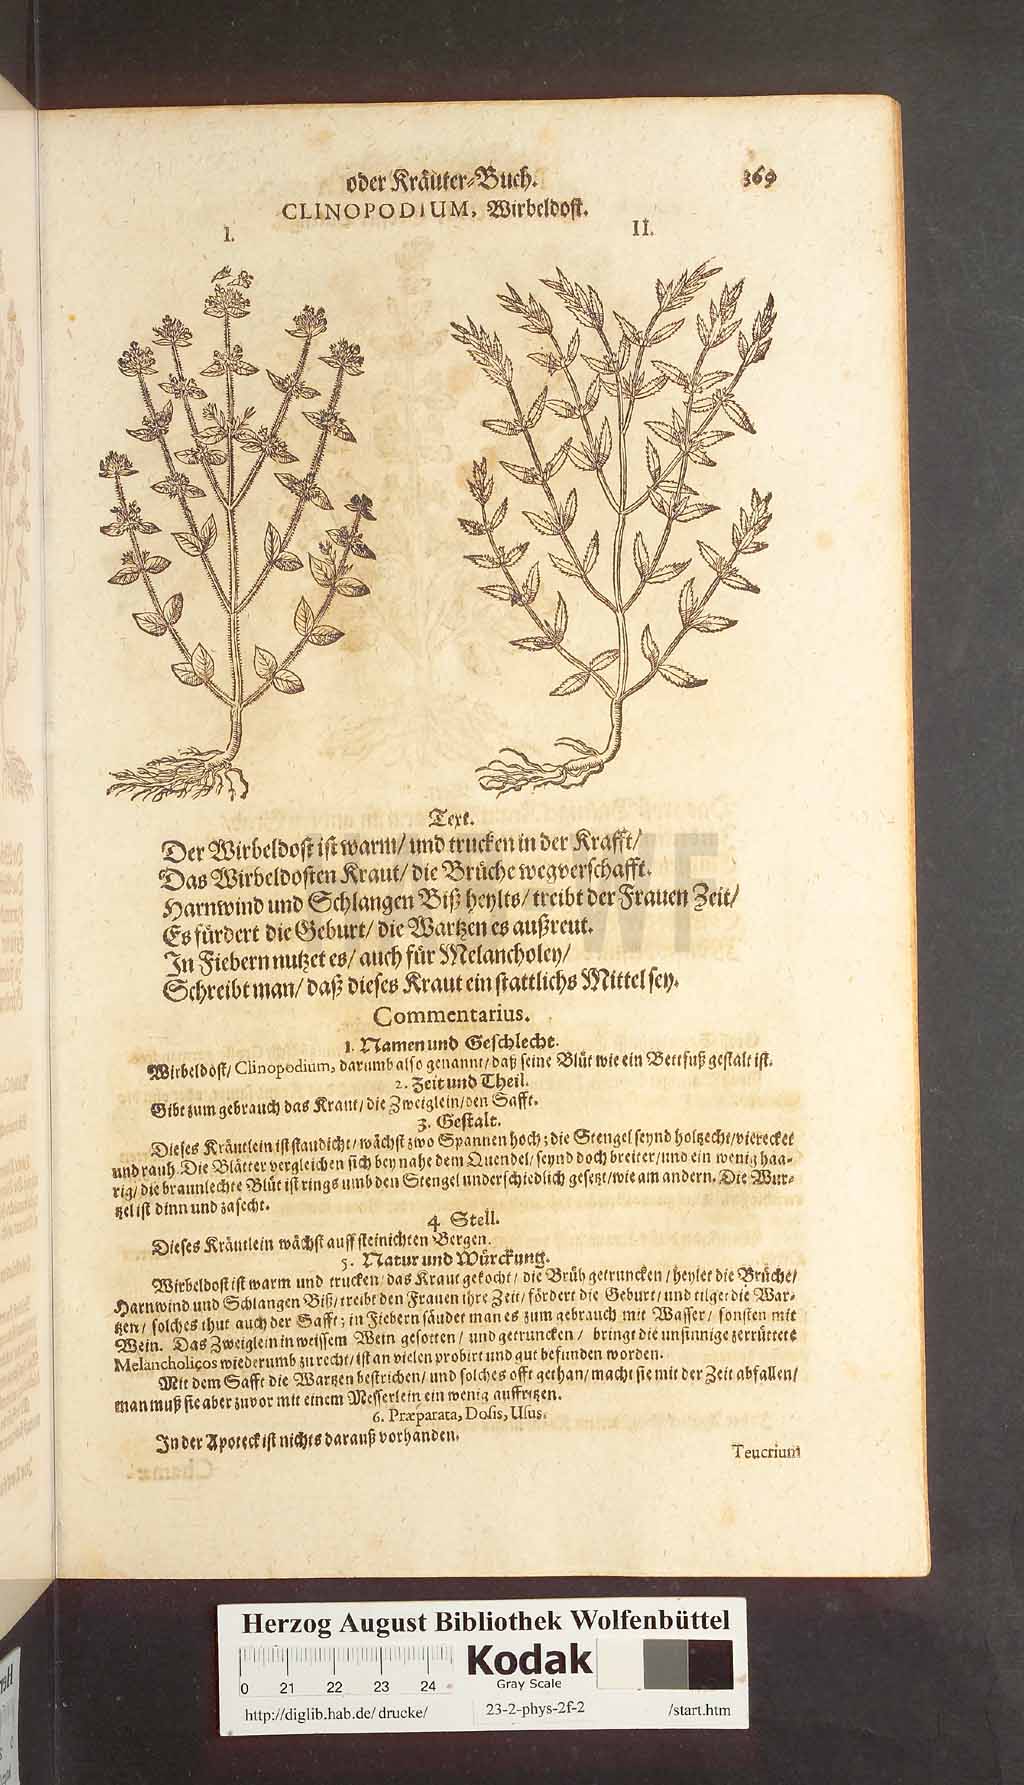 oder Kräuter-Buch. 369
CLINOPODIUM, Wirbeldost.
I. II.
Text.
Der Wirbeldost ist warm/ und trucken in der Krafft/
Das Wirbeldosten Kraut/ die Brüche wegverschafft.
Harnwind und Schlangen Biß heylts/ treibt der Frauen Zeit/
Es fürdert die Geburt/ die Wartzen es außreut.
In Fiebern nutzet es/ auch für Melancholey/
Schreibt man/ daß dieses Kraut ein stattlichs Mittel sey.
Commentarius.
1. Namen und Geschlecht.
Wirbeldost/ Clinopodium, darumb also genannt/ daß seine Blüt wie ein Bettfuß gestalt ist.
2. Zeit und Theil.
Gibt zum gebrauch das Kraut/ die Zweiglein/ den Safft.
3. Gestalt.
Dieses Kräutlein ist staudicht/ wächst zwo Spannen hoch; die Stengel seynd holtzecht/ vierecket
und rauh. Die Blätter vergleichen sich bey nahe dem Quendel/ seynd doch breiter/ und ein wenig haa-
rig/ die braunlechte Blüt ist rings umb den Stengel underschiedlich gesetzt/ wie am andern. Die Wur-
tzel ist dinn und zasecht.
4. Stell.
Dieses Kräutlein wächst auff steinichten Bergen.
5. Natur und Würckung.
Wirbeldost ist warm und trucken/ das Kraut gekocht/ die Brüh getruncken/ heylet die Brüche/
Harnwind und Schlangen Biß/ treibt den Frauen ihre Zeit/ fördert die Geburt/ und tilget die War-
tzen/ solches thut auch der Safft; in Fiebern säudet man es zum gebrauch mit Wasser/ sonsten mit
Wein. Das Zweiglein in weissem Wein gesotten/ und getruncken/ bringt die unsinnige zerrüttete
Melancholicos wiederumb zu recht/ ist an vielen probirt und gut befunden worden.
Mit dem Safft die Wartzen bestrichen/ und solches offt gethan/ macht sie mit der Zeit abfallen/
man muß sie aber zuvor mit einem Messerlein ein wenig auffritzen.
6. Præparata, Dosis, Usus.
In der Apoteck ist nichts darauß vorhanden.
Teucrium
Herzog August Bibliothek Wolfenbüttel
0 21 22 23 24
Kodak
Gray Scale
http://diglib.hab.de/drucke/ 23-2-phys-2f-2 /start.htm